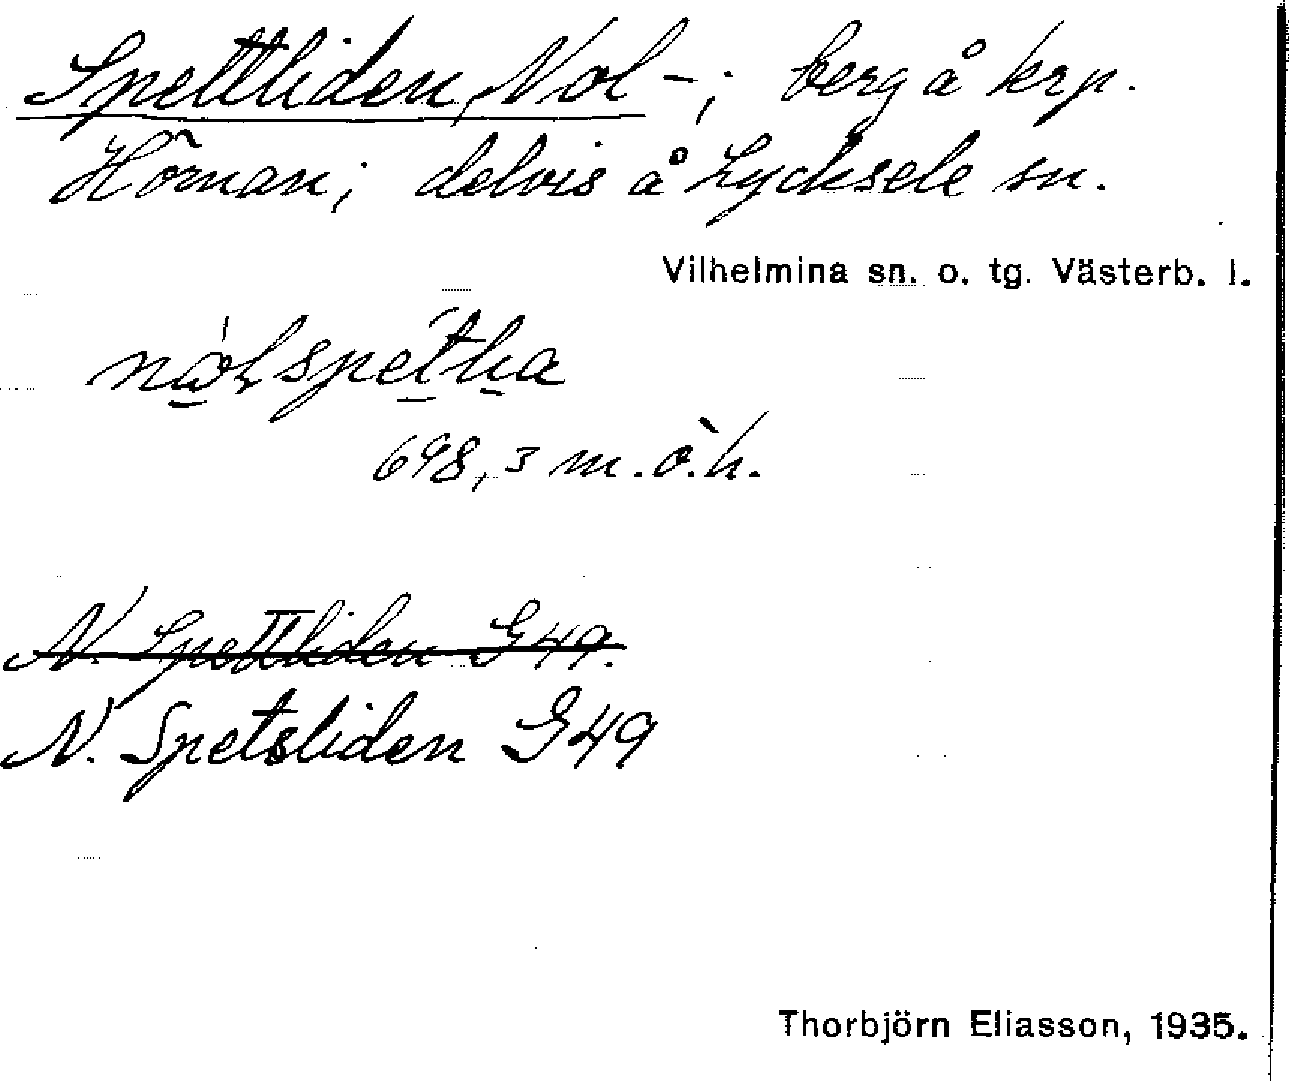 Spettliden, Nol-; berg å krp.
Hörnan; delvis å Lycksele sn.
Vilhelmina sn. o. tg. Västerb. l.
698,3 m.ö.h.
N. Spettliden G49.
N. Spetsliden G49
Thorbjörn Eliasson, 1935.